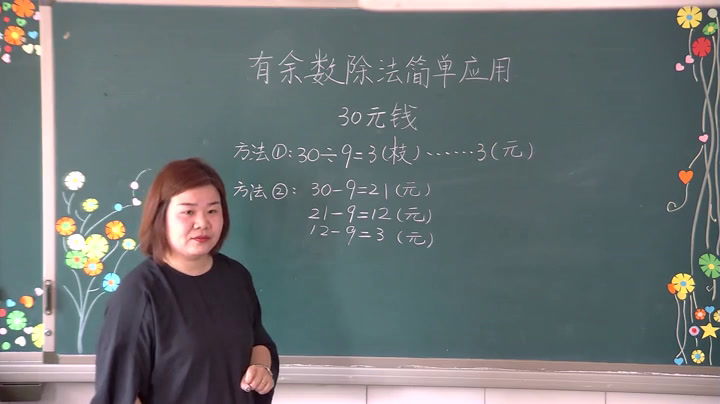 有余数除法简单应用
30元钱
方法①:30÷9=3(枝)……3(元)
方法②: 30-9=21(元)
21-9=12(元)
12-9=3(元)